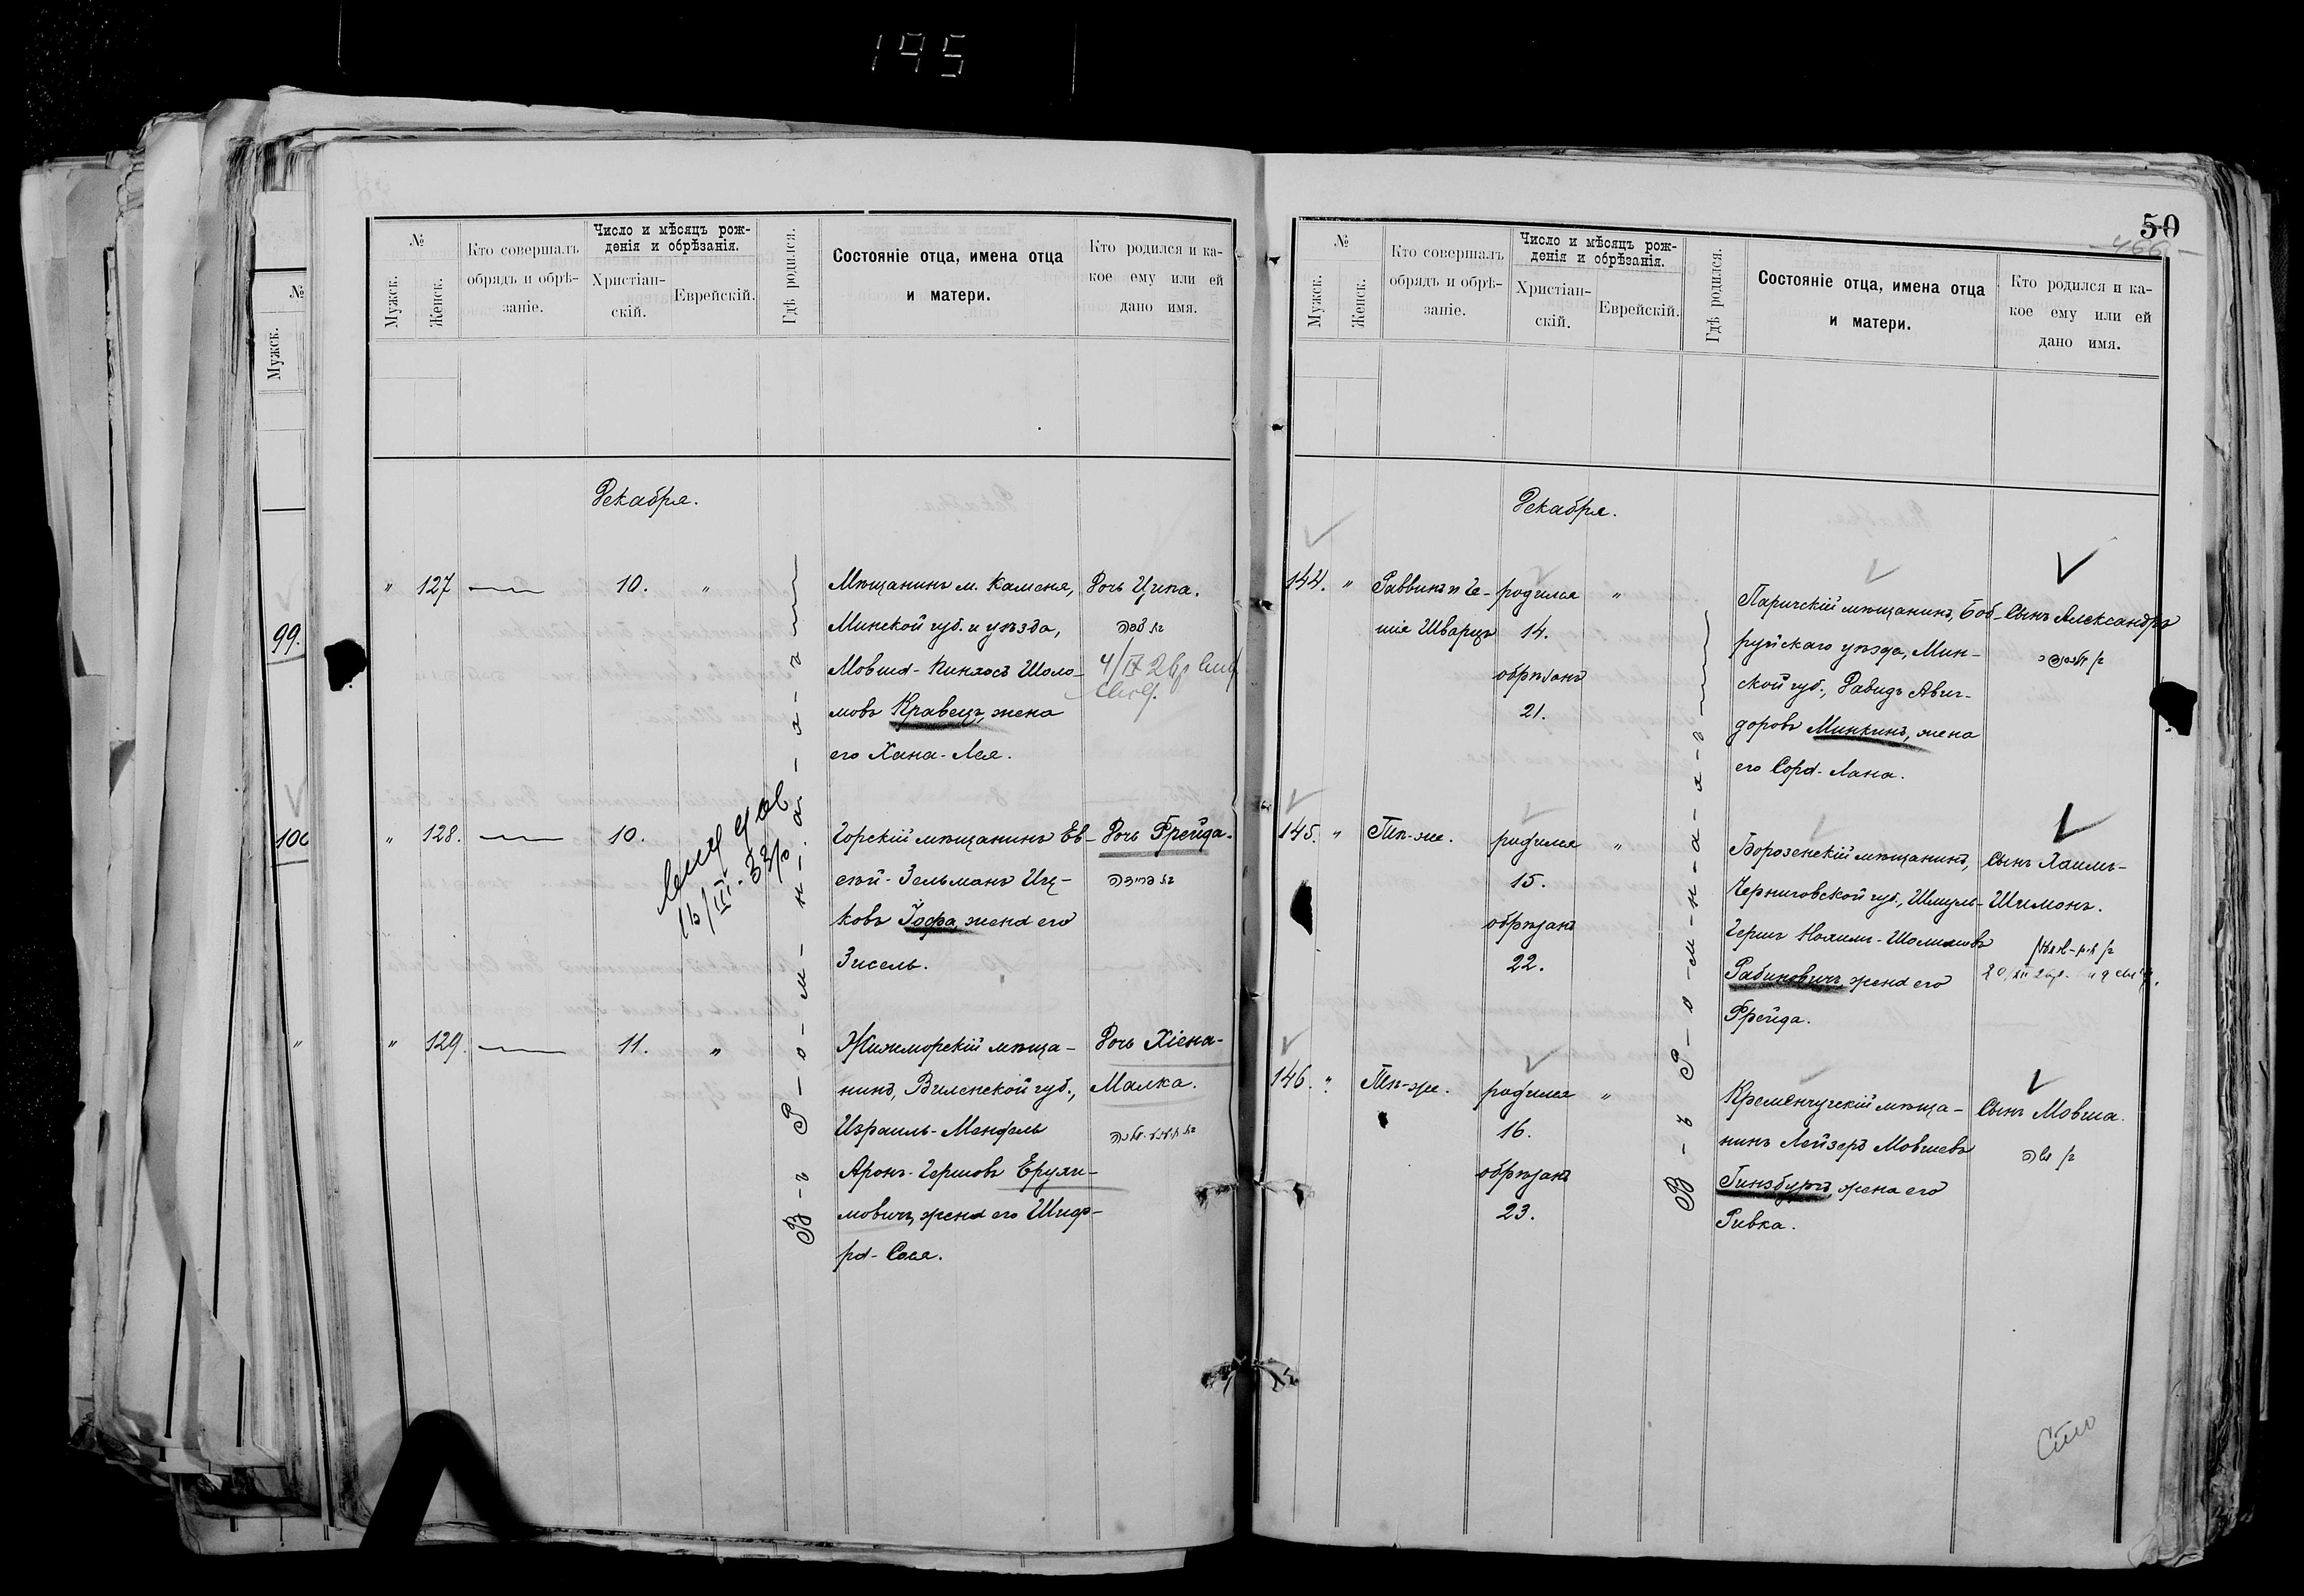 195
№
Мужск.
99.
100
"
№
Мужск.
Женск.
Кто совершалъ
обрядъ и обрѣ-
заніе.
Число и мѣсяцъ рож-
денія и обрѣзанія.
Христіан-
скій.
Еврейскій.
Гдѣ родился.
Состояніе отца, имена отца
и матери.
Кто родился и ка-
кое ему или ей
дано имя.
Декабря.
" 127 10. "
Мѣщанинъ м. Каменя,
Минской губ. и уѣзда,
Мовша-Пинхосъ Шоло-
мовъ Кравецъ, жена
его Хана-Лея.
Дочь Ципа.
" 128. 10.
Горскій мѣщанинъ Ев-
сѣй-Зельманъ Иц-
ковъ Іофа, жена его
Зисель.
Дочь Фрейда.
16/III-33
" 129. 11. "
Жижморскій мѣща-
нинъ, Виленской губ.,
Израиль-Мендель
Аронъ-Гершовъ Ерухи-
мовичъ, жена его Шиф-
ра-Сося.
Дочь Хіена-
Малка.
В-ъ Р-о-м-н-а-х-ъ
50
466
№
Мужск.
Женск.
Кто совершалъ
обрядъ и обрѣ-
заніе.
Число и мѣсяцъ рож-
денія и обрѣзанія.
Христіан-
скій.
Еврейскій.
Гдѣ родился.
Состояніе отца, имена отца
и матери.
Кто родился и ка-
кое ему или ей
дано имя.
Декабря.
144. "
Шварцъ
родился "
14.
обрѣзанъ
21.
Паричскій мѣщанинъ, Боб-
руйскаго уѣзда, Мин-
ской губ., Давидъ Авиг-
доровъ Минкинъ, жена
его Сора-Лана.
Сынъ Александръ
145. " Тѣ-же.
родился "
15.
обрѣзанъ
22.
Борозенскій мѣщанинъ,
Черниговской губ., Шмуль-
Рабиновичъ, жена его
Фрейда.
Сынъ Хаимъ-
Шимонъ.
146. " Тѣ-же.
родился "
16.
обрѣзанъ
23.
Кременчугскій мѣща-
нинъ Лейзеръ Мовшевъ
Гинзбургъ, жена его
Ривка.
Сынъ Мовша.
В-ъ Р-о-м-н-а-х-ъ